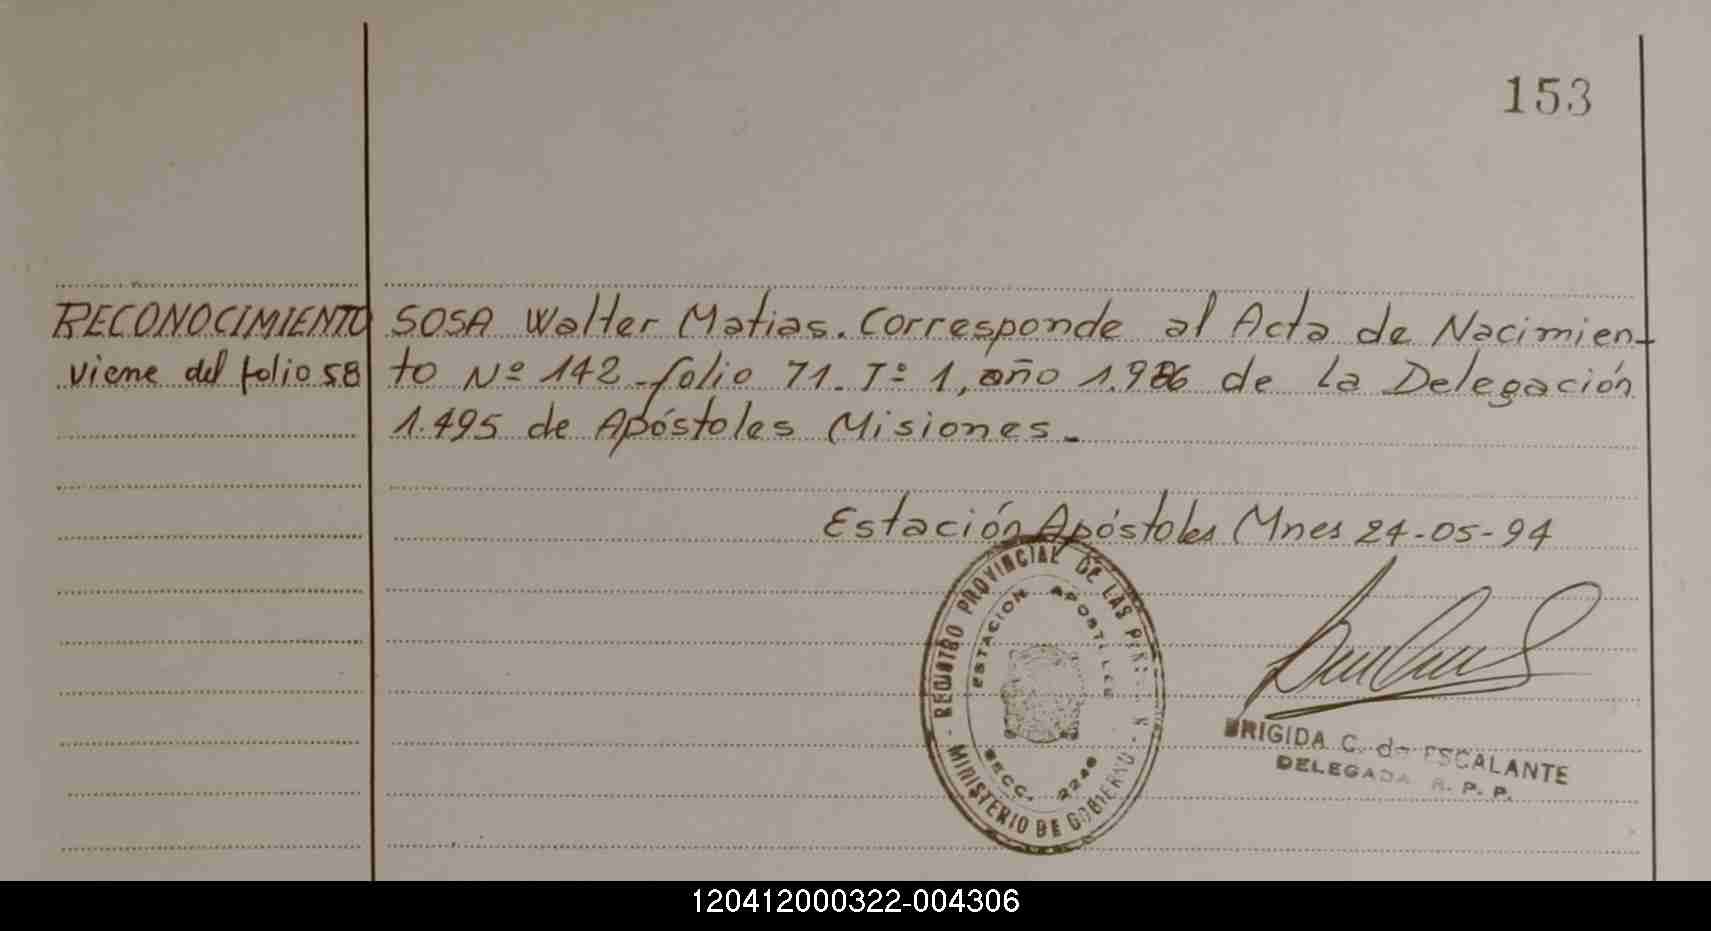 153
RECONOCIMIENTO
viene del folio 58
SOSA Walter Matias. Corresponde al Acta de Nacimien-
to Nº 142 folio 71. Tº 1, año 1.986 de la Delegación
1.495 de Apóstoles Misiones.-
Estación Apóstoles Mnes 24-05-94
REGISTRO PROVINCIAL DE LAS
MINISTERIO DE GOBIERNO
ESTACION
SECC. 2248
BRIGIDA C. de ESCALANTE
DELEGADA R. P. P.
120412000322-004306